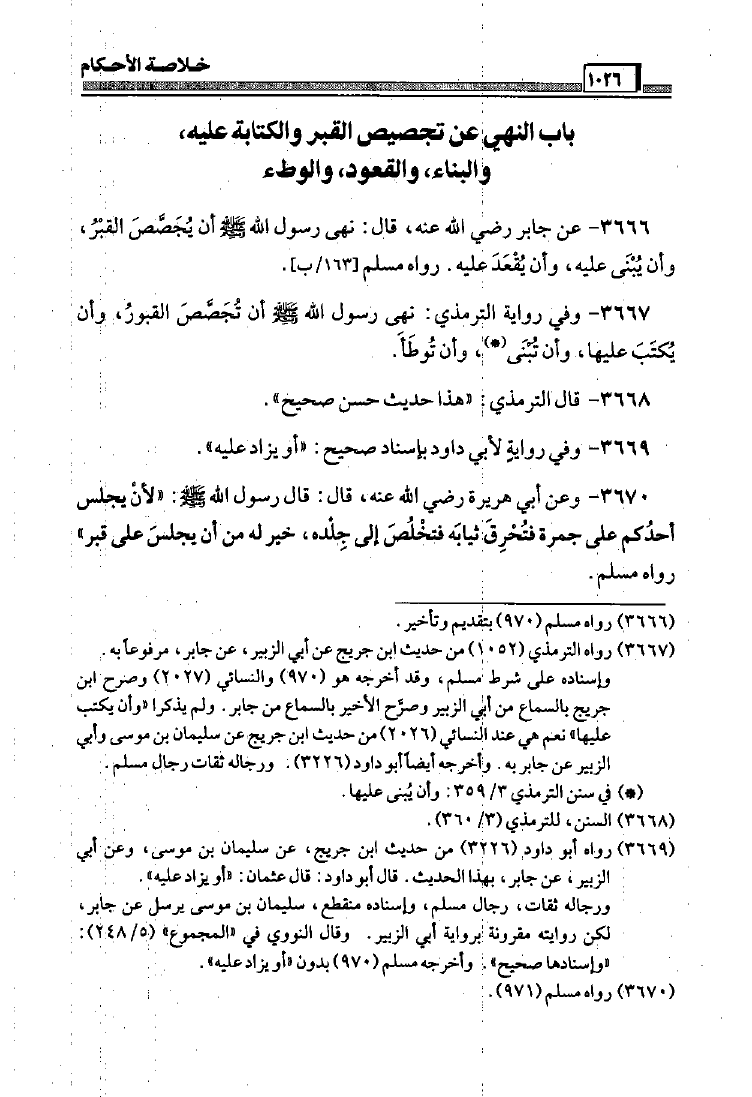 ١٠٢٦ خلاصة الأحكام
باب النهي عن تجصيص القبر والكتابة عليه،
والبناء، والقعود، والوطء
٣٦٦٦- عن جابر رضي الله عنه، قال: نهى رسول الله ﷺ أن يُجَصَّصَ القَبْرُ،
وأن يُبْنَى عليه، وأن يُقْعَدَ عليه. رواه مسلم [١٦٣/ب].
٣٦٦٧- وفي رواية الترمذي: نهى رسول الله ﷺ أن تُجَصَّصَ القبورُ، وأن
يُكتَبَ عليها، وأن تُبْنَى(*)، وأن تُوطَأَ.
٣٦٦٨- قال الترمذي: «هذا حديث حسن صحيح».
٣٦٦٩- وفي روايةٍ لأبي داود بإسناد صحيح: «أو يزاد عليه».
٣٦٧٠- وعن أبي هريرة رضي الله عنه، قال: قال رسول الله ﷺ: «لأنْ يجلس
أحدُكم على جمرة فتُحْرِقَ ثيابَه فتخْلُصَ إلى جِلْده، خير له من أن يجلسَ على قبر»
رواه مسلم.
(٣٦٦٦) رواه مسلم (٩٧٠) بتقديم وتأخير.
(٣٦٦٧) رواه الترمذي (١٠٥٢) من حديث ابن جريج عن أبي الزبير، عن جابر، مرفوعاً به.
وإسناده على شرط مسلم، وقد أخرجه هو (٩٧٠) والنسائي (٢٠٢٧) وصرح ابن
جريج بالسماع من أبي الزبير وصرَّح الأخير بالسماع من جابر. ولم يذكرا «وأن يكتب
عليها» نعم هي عند النسائي (٢٠٢٦) من حديث ابن جريج عن سليمان بن موسى وأبي
الزبير عن جابر به. وأخرجه أيضاً أبو داود (٣٢٢٦). ورجاله ثقات رجال مسلم.
(*) في سنن الترمذي ٣/ ٣٥٩: وأن يُبنى عليها.
(٣٦٦٨) السنن، للترمذي (٣/ ٣٦٠).
(٣٦٦٩) رواه أبو داود (٣٢٢٦) من حديث ابن جريج، عن سليمان بن موسى، وعن أبي
الزبير، عن جابر، بهذا الحديث. قال أبو داود: قال عثمان: «أو يزاد عليه».
ورجاله ثقات، رجال مسلم، وإسناده منقطع، سليمان بن موسى يرسل عن جابر،
لكن روايته مقرونة برواية أبي الزبير. وقال النووي في «المجموع» (٥/ ٢٤٨):
«وإسنادها صحيح». وأخرجه مسلم (٩٧٠) بدون «أو يزاد عليه».
(٣٦٧٠) رواه مسلم (٩٧١).